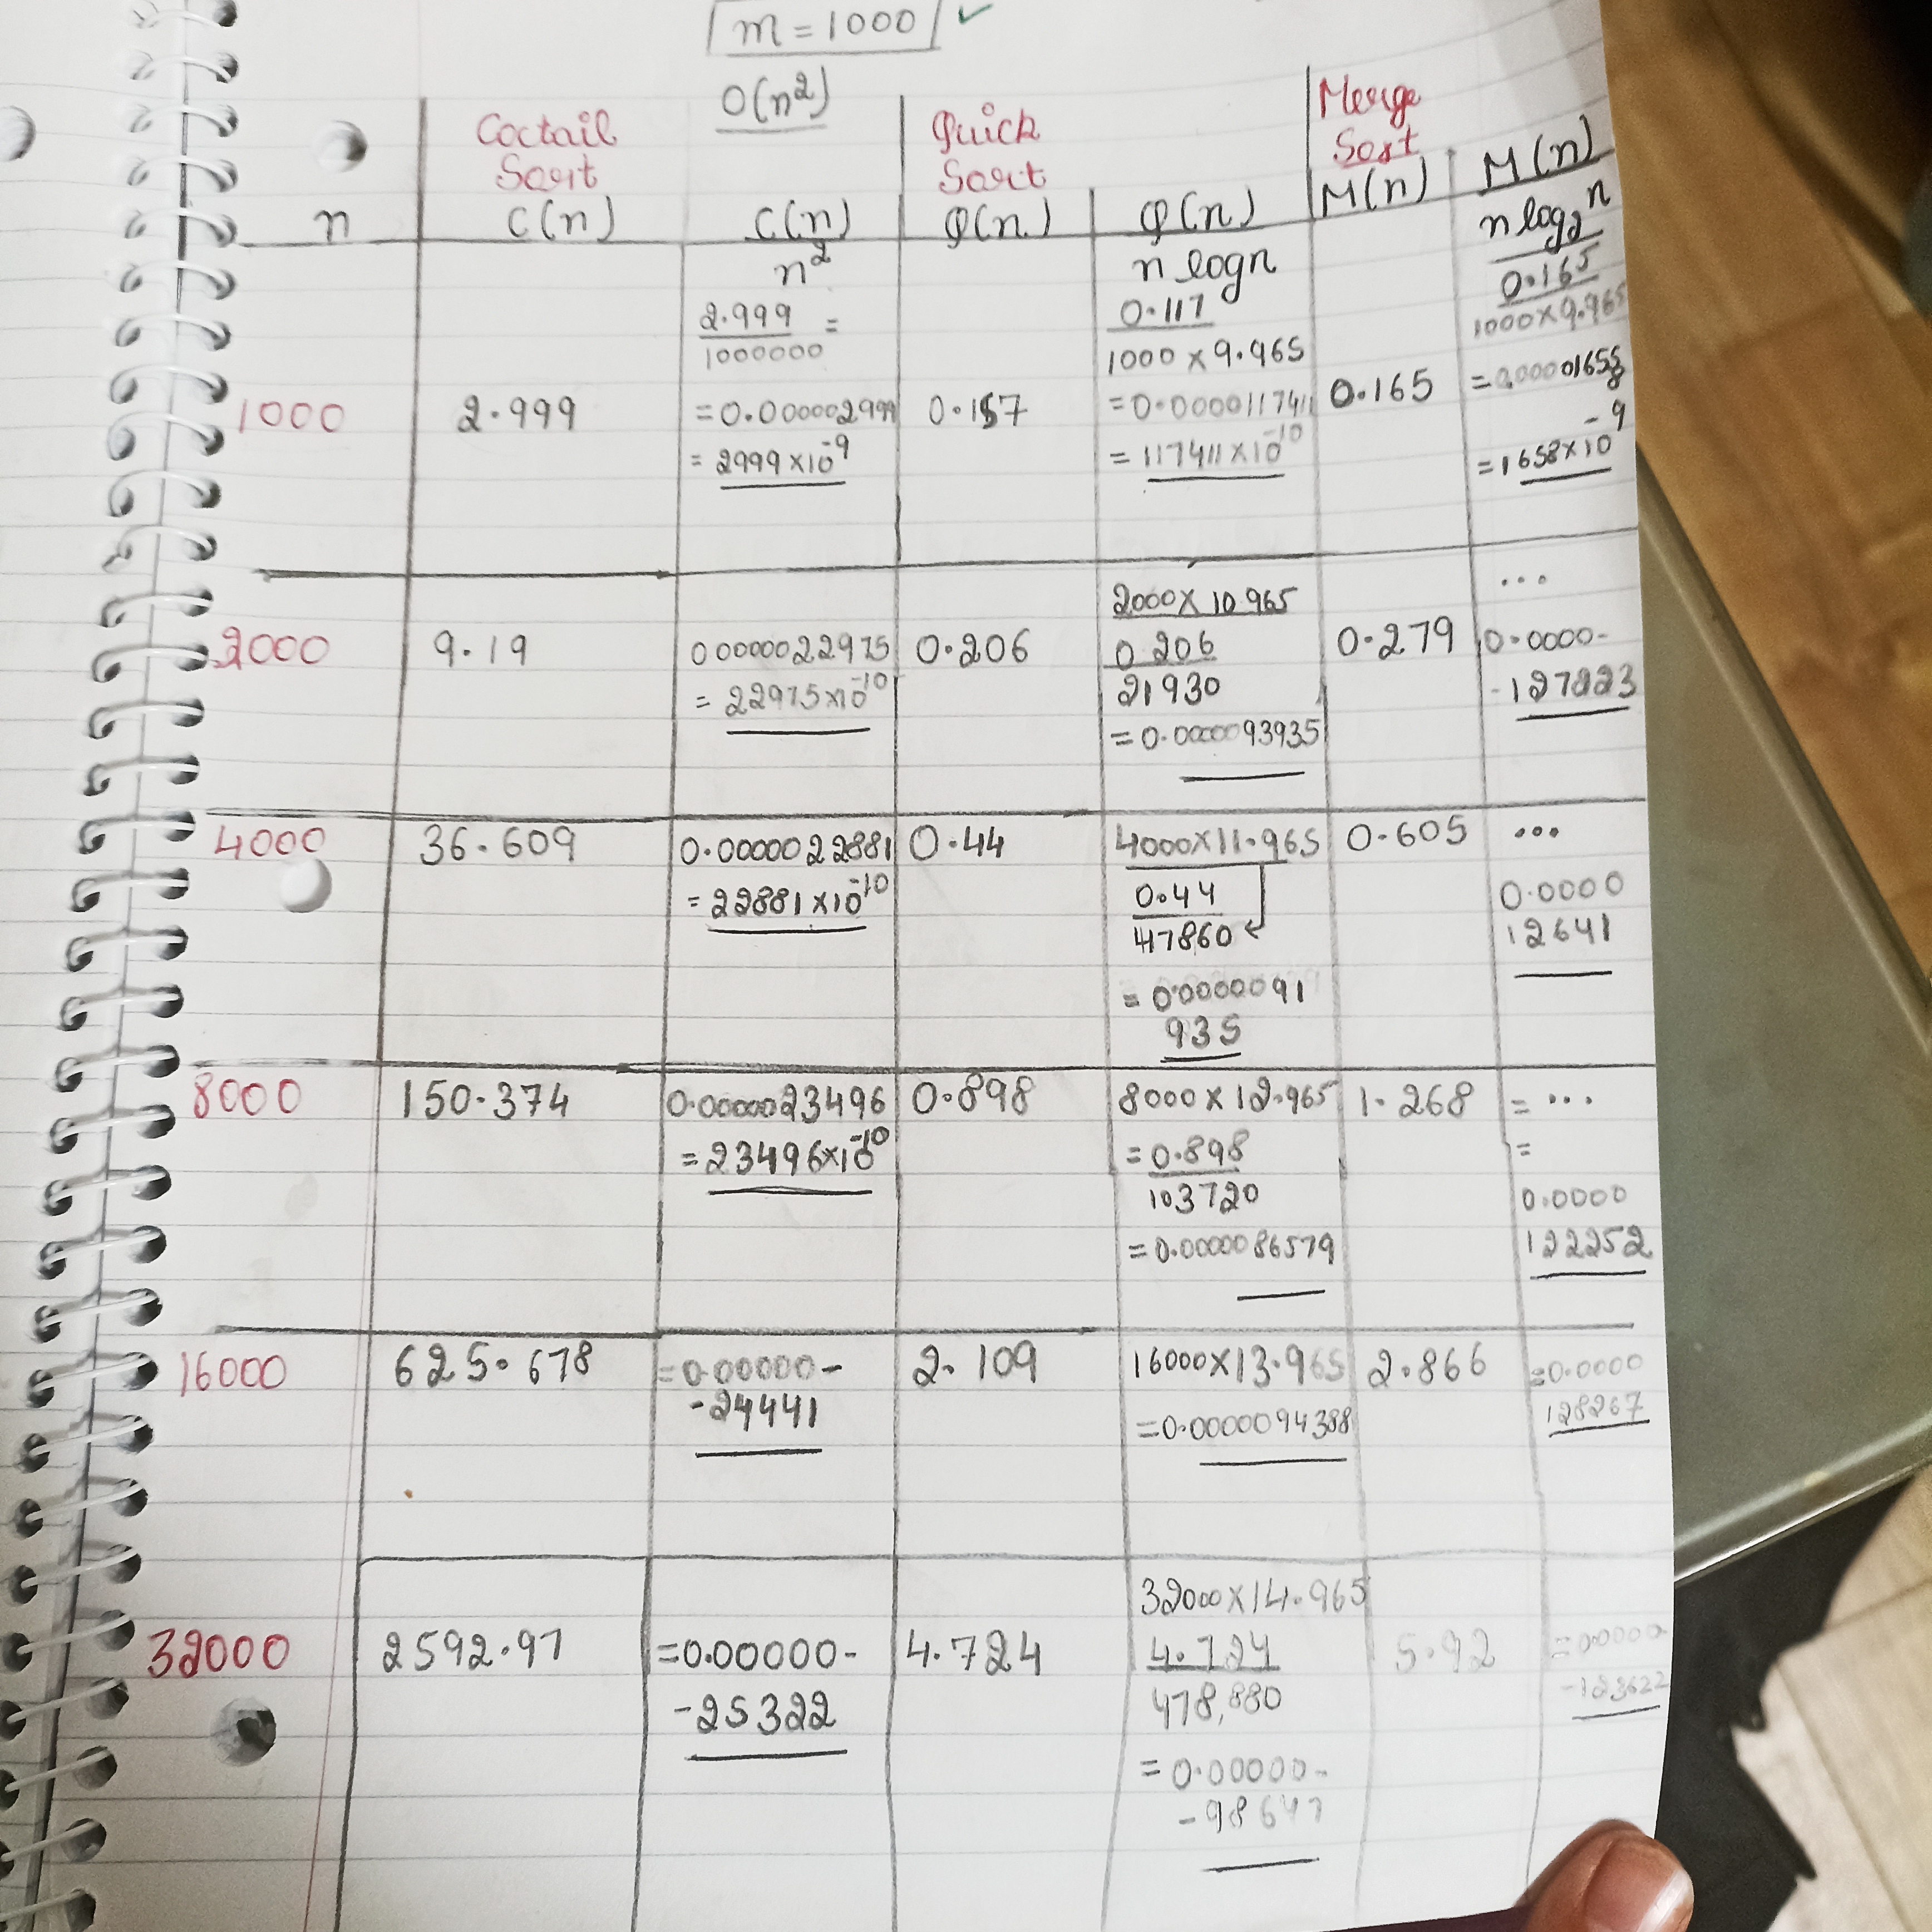 m = 1000 ✓
O(n²)
Coctail Sort
Quick Sort
Merge Sort
n
C(n)
C(n) / n²
Q(n)
Q(n) / n log n
M(n)
M(n) / n log₂ n
1000
2.999
2.999 / 1000000 =
= 0.000002999
= 2999 x 10⁻⁹
0.117 / 1000 x 9.965
= 0.0000117411
= 117411 x 10⁻¹⁰
0.165
0.165 / 1000 x 9.965
= 1658 x 10⁻⁹
2000
9.19
0 0000022975
= 22975 x 10⁻¹⁰
0.206
2000 x 10.965
0 206 / 21930
= 0.0000093935
0.279
...
0.0000-
-127223
4000
36.609
0.0000022881
= 22881 x 10⁻¹⁰
0.44
4000 x 11.965
0.44 / 47860
= 0.0000091
935
0.605
...
0.0000
12641
8000
150.374
0.0000023496
= 23496 x 10⁻¹⁰
0.898
8000 x 12.965
= 0.898 / 103720
= 0.0000086579
1.268
= ...
=
0.0000
122252
16000
625.678
= 0.00000-
-24441
2.109
16000 x 13.965
= 0.0000094388
2.866
= 0.0000
128267
32000
2592.97
= 0.00000-
-25322
4.724
32000 x 14.965
4.724 / 478,880
= 0.00000-
5.92
= 0.0000-
-123622